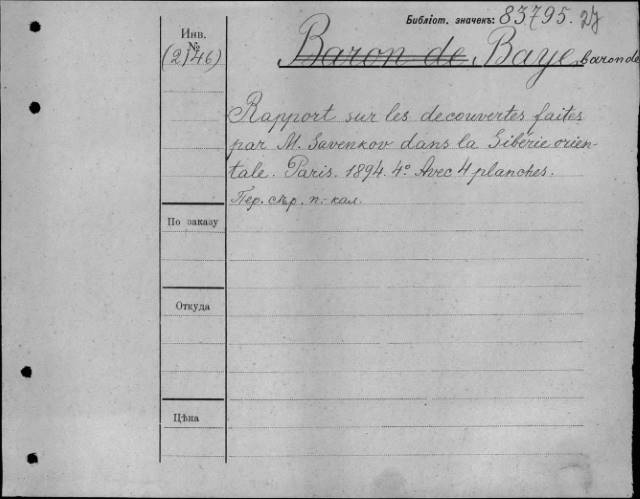 Библіот. значекъ: 83795.
Инв.
№
(2146)
Baron de Baye, baron de
Rapport sur les decouvertes faites
par M. Savenkov dans la Sibérie orien-
tale. Paris. 1894. 4º Avec 4 planches.
Пер. сѣр. п.-кал.
По заказу
Откуда
Цѣна